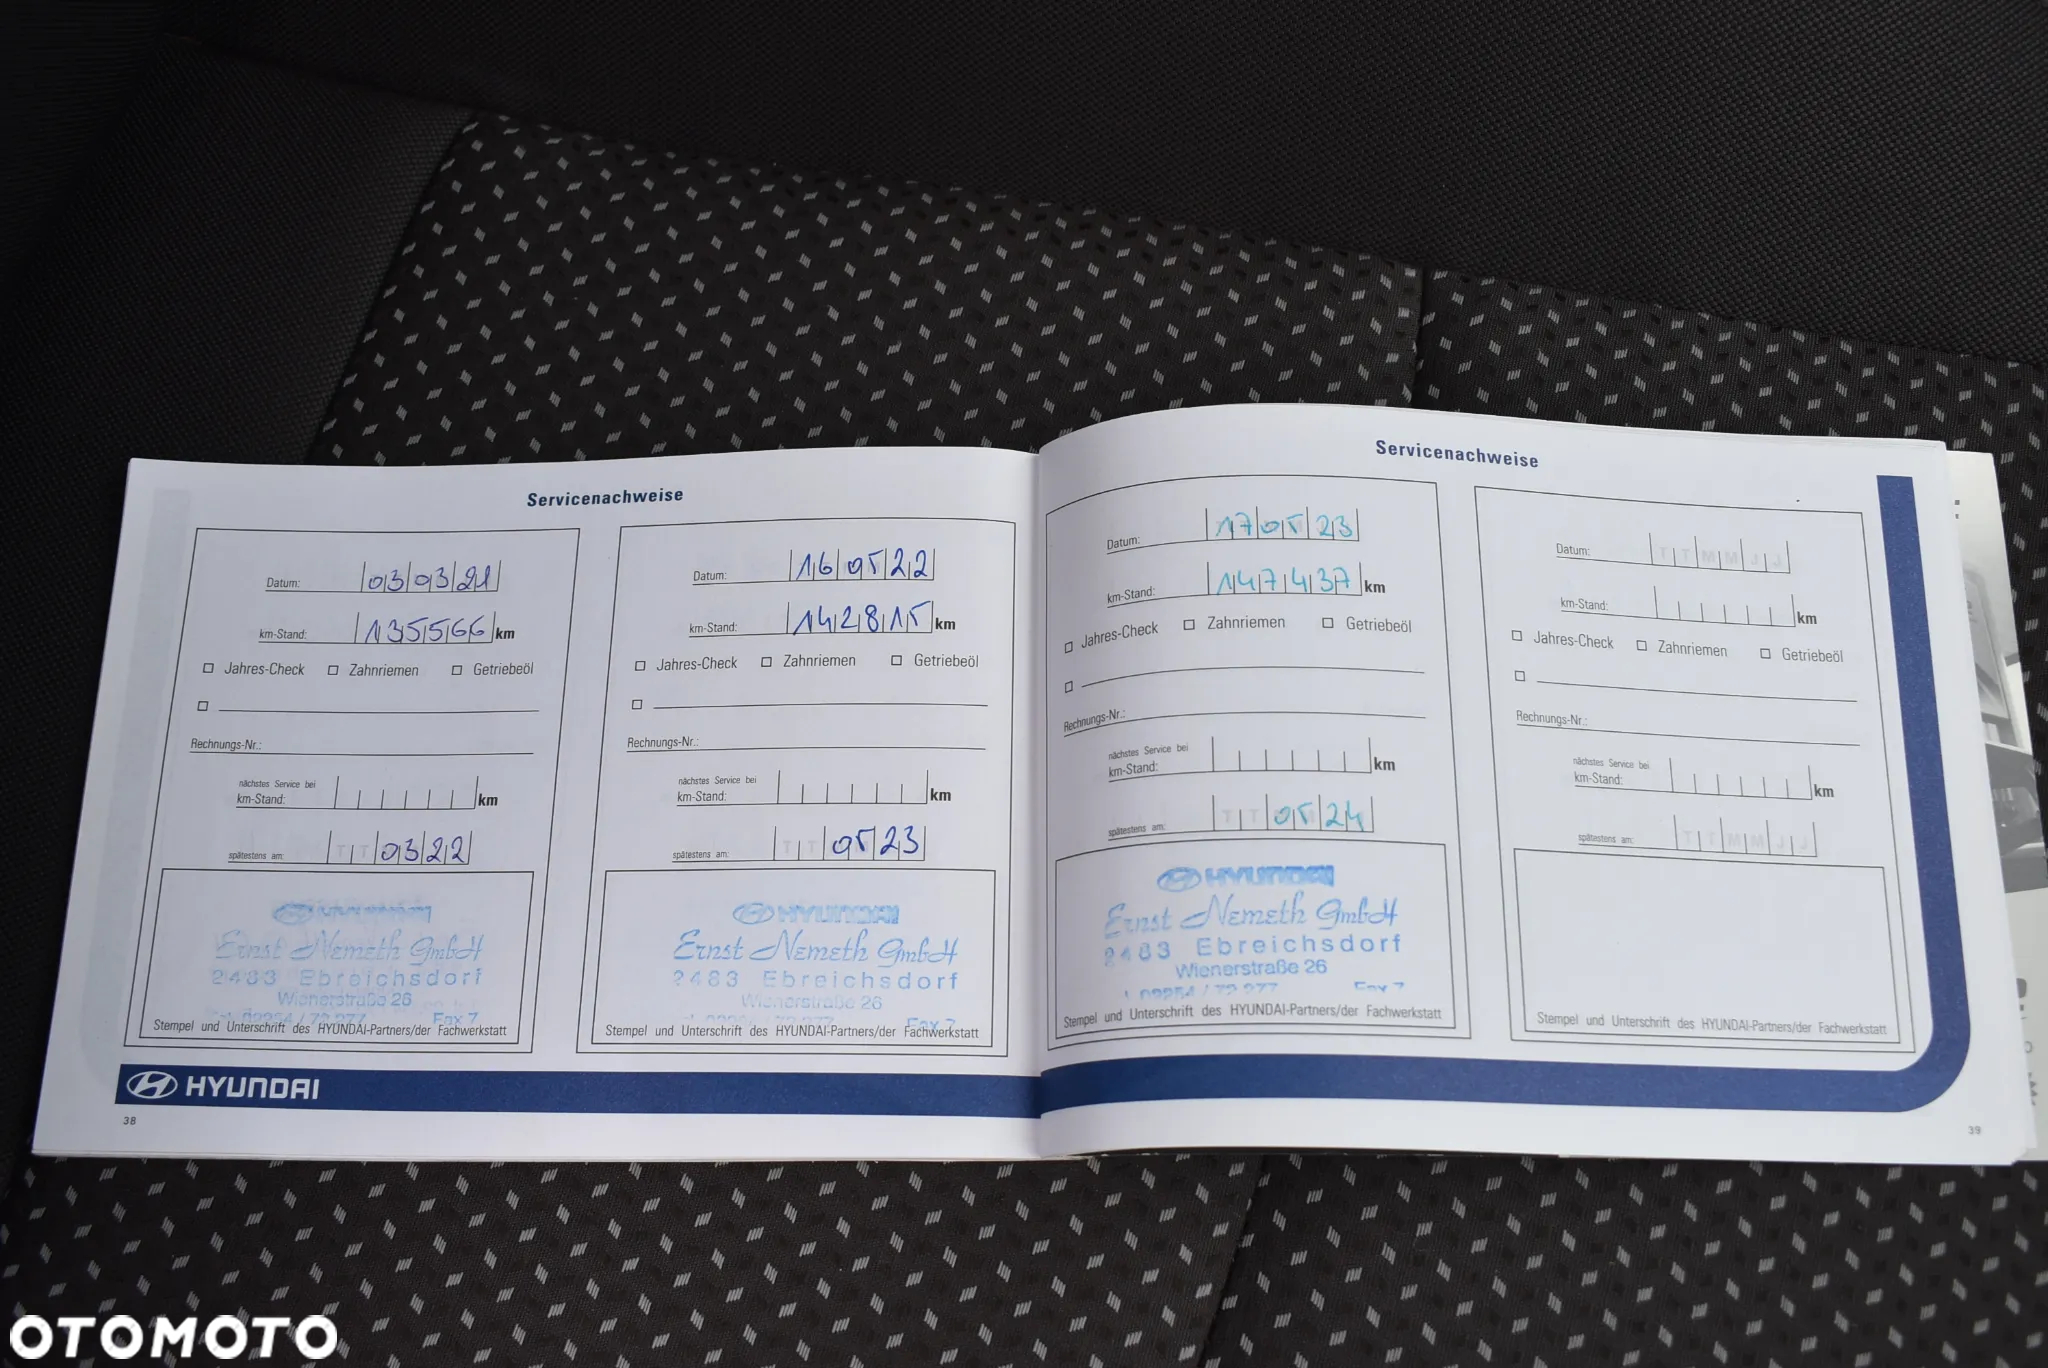 Servicenachweise
Datum: 03 03 21
km-Stand: 135566 km
Jahres-Check Zahnriemen Getriebeöl
Rechnungs-Nr.:
nächstes Service bei
km-Stand: km
spätestens am: T T 03 22
Ernst Nemeth GmbH
2483 Ebreichsdorf
Wienerstraße 26
Fax 7
Stempel und Unterschrift des HYUNDAI-Partners/der Fachwerkstatt
Datum: 16 05 22
km-Stand: 142815 km
Jahres-Check Zahnriemen Getriebeöl
Rechnungs-Nr.:
nächstes Service bei
km-Stand: km
spätestens am: T T 05 23
HYUNDAI
Ernst Nemeth GmbH
2483 Ebreichsdorf
Wienerstraße 26
Fax 7
Stempel und Unterschrift des HYUNDAI-Partners/der Fachwerkstatt
HYUNDAI
38
Servicenachweise
Datum: 17 05 23
km-Stand: 147437 km
Jahres-Check Zahnriemen Getriebeöl
Rechnungs-Nr.:
nächstes Service bei
km-Stand: km
spätestens am: T T 05 24
HYUNDAI
Ernst Nemeth GmbH
2483 Ebreichsdorf
Wienerstraße 26
Fax 7
Stempel und Unterschrift des HYUNDAI-Partners/der Fachwerkstatt
Datum: T T M M J J
km-Stand: km
Jahres-Check Zahnriemen Getriebeöl
Rechnungs-Nr.:
nächstes Service bei
km-Stand: km
spätestens am: T T M M J J
Stempel und Unterschrift des HYUNDAI-Partners/der Fachwerkstatt
39
OTOMOTO